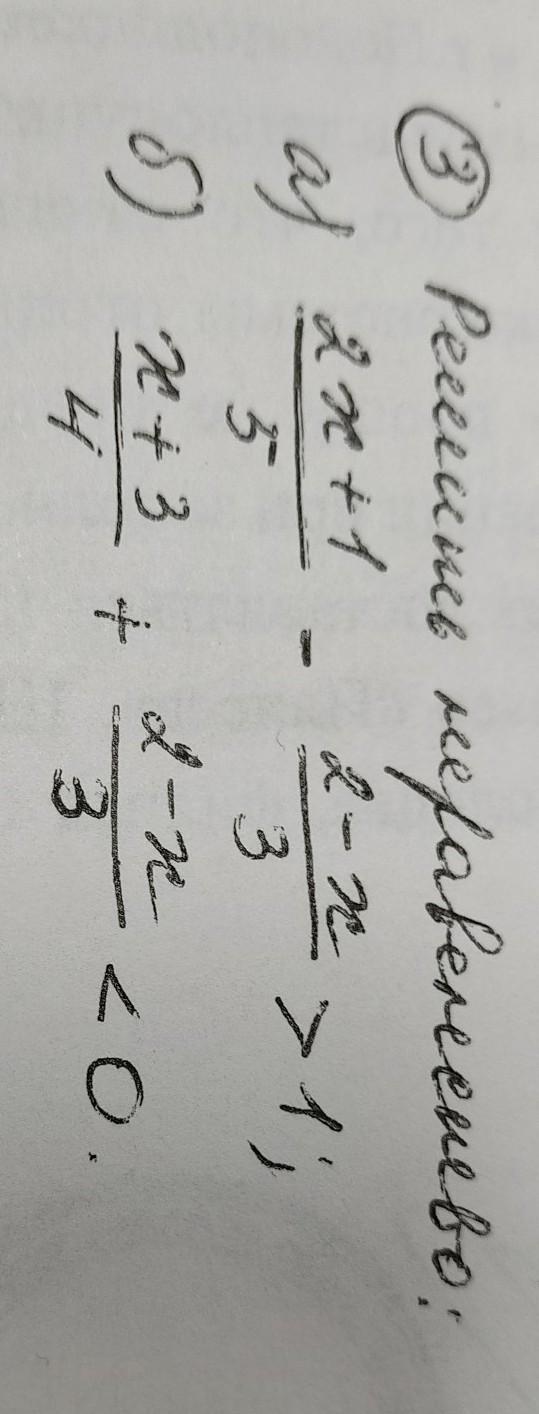 ③ Решить неравенство:
а) (2x+1)/5 - (2-x)/3 > 1;
б) (x+3)/4 + (2-x)/3 < 0.